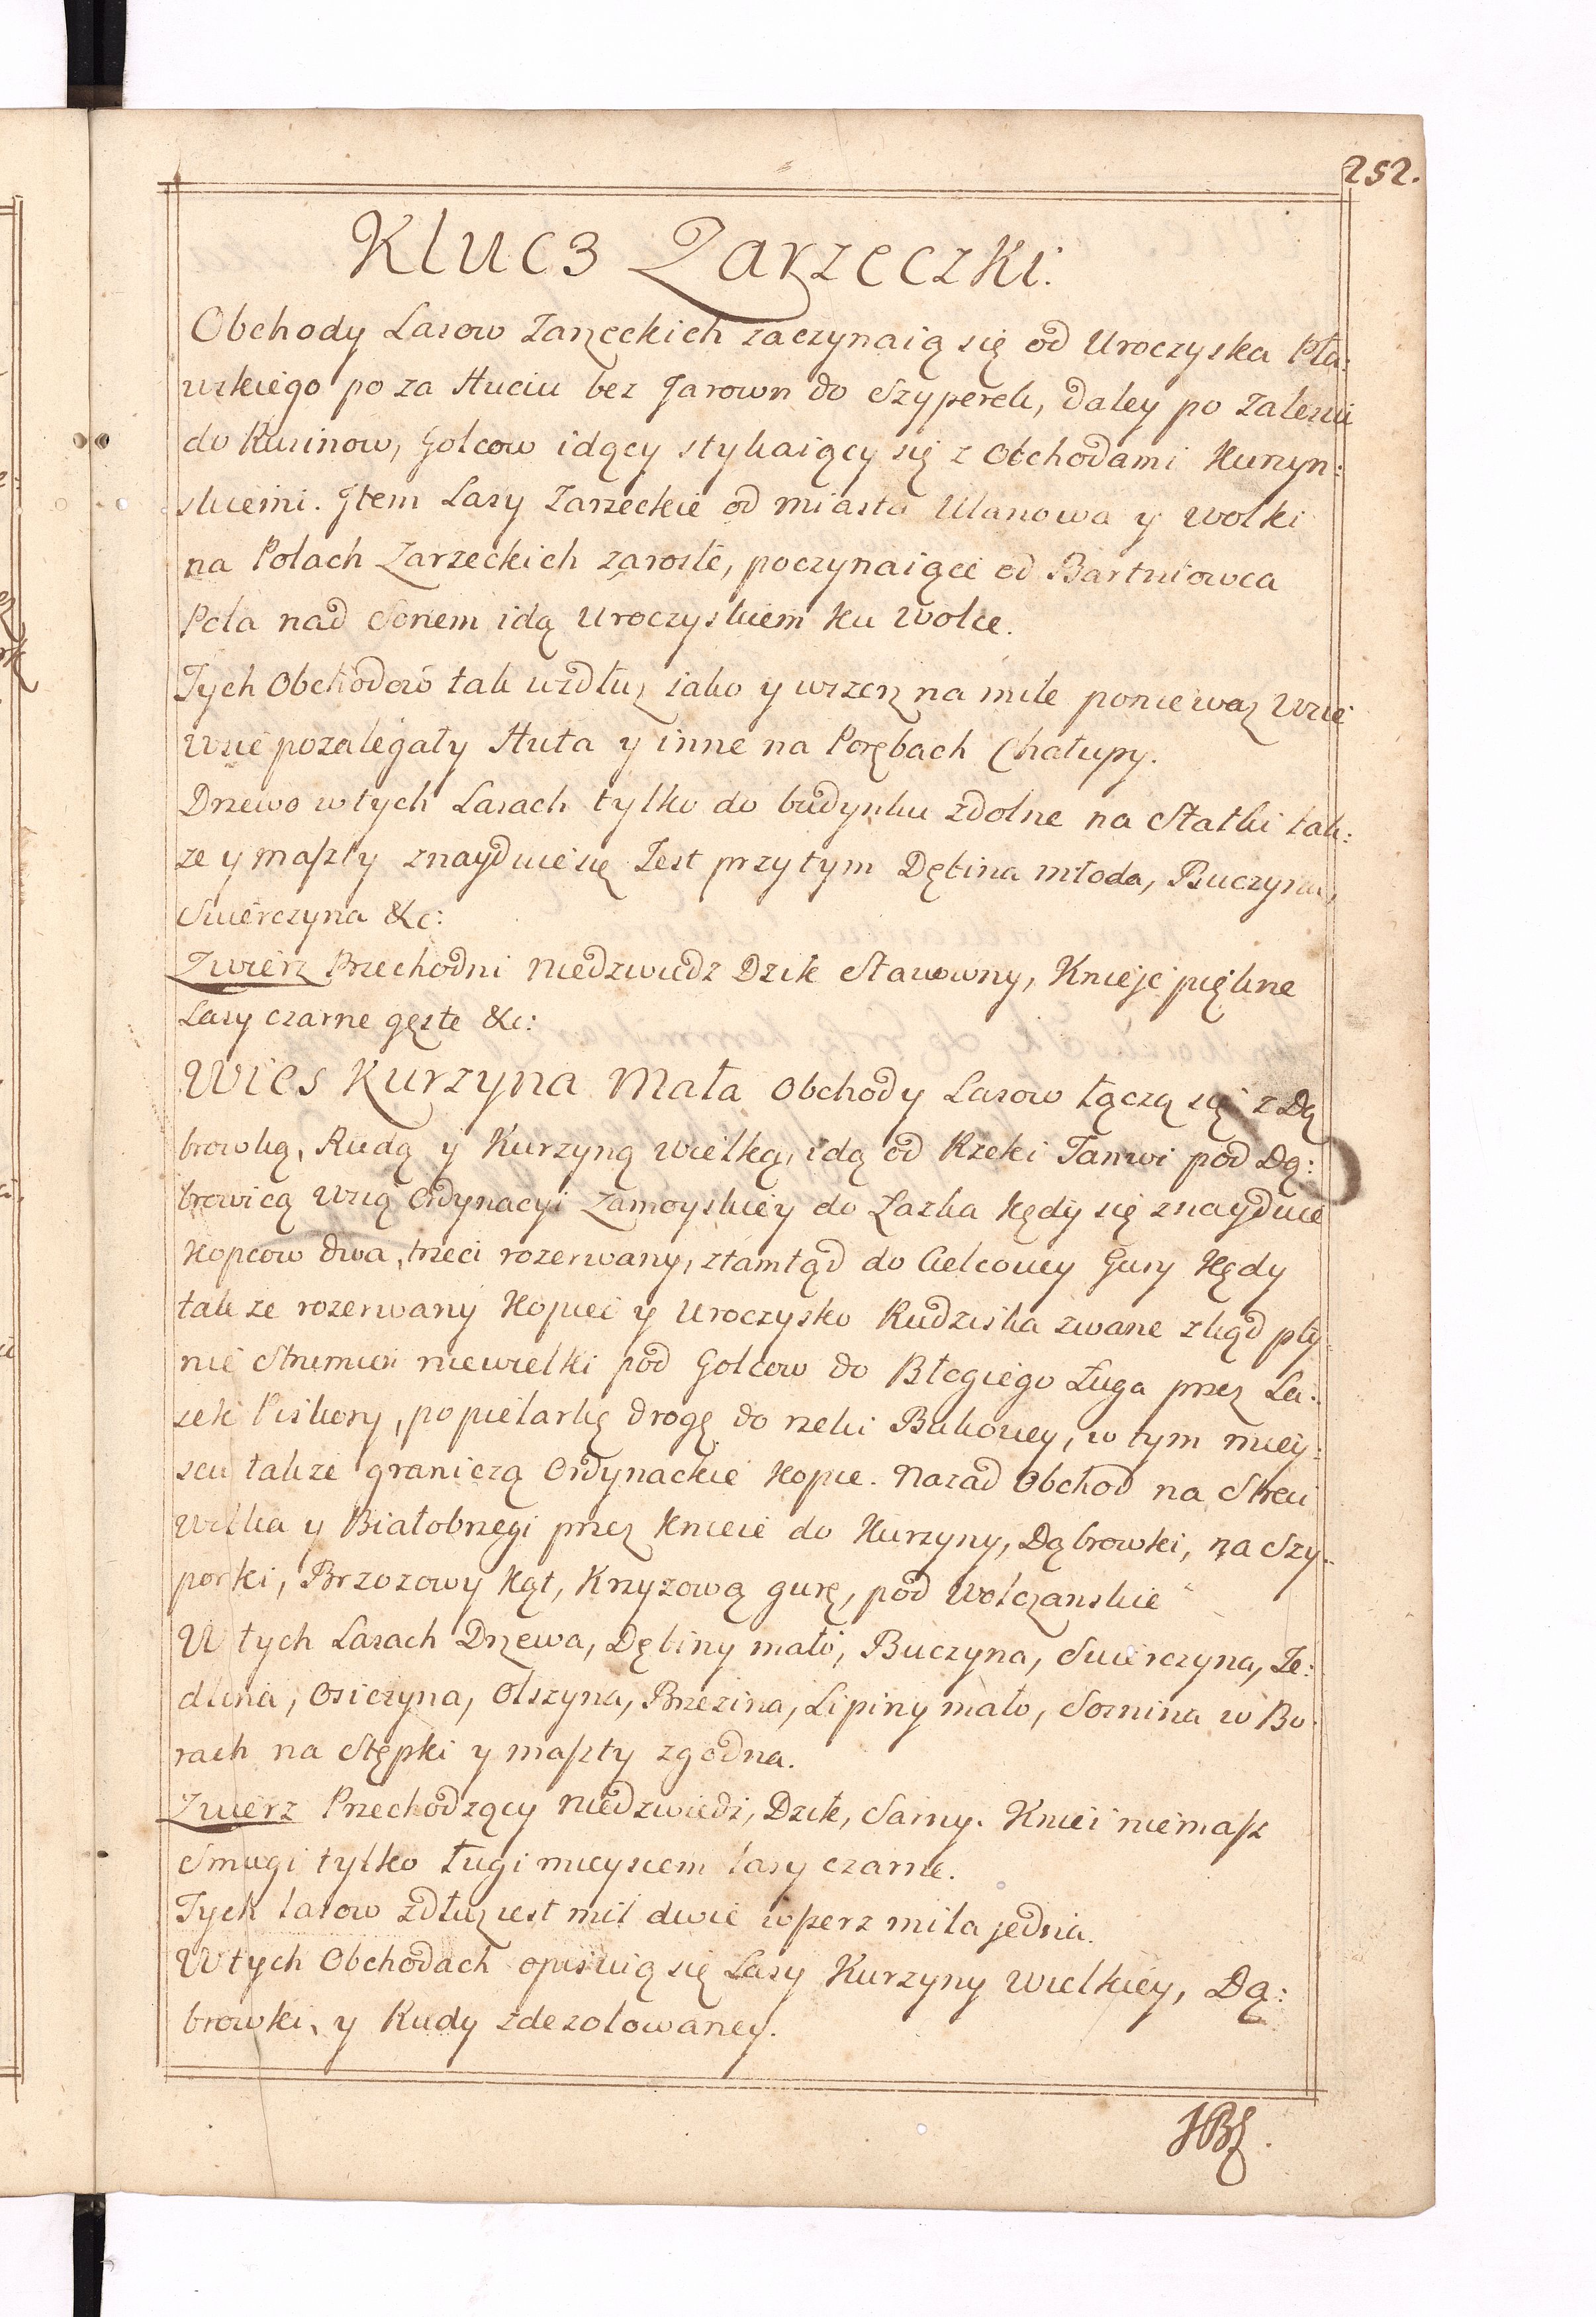 252.
Klucz Zarzeczki.
Obchody Lasow Zarzeckich zaczynaią się od Uroczyska Pła:
wskiego po za Huciu bez Jarown do Szyperek, daley po Zalesiu
do Rusinow, Golcow idący stykaiący się z Obchodami Kurzyn:
skiemi. Jtem Lasy Zarzeckie od miasta Ulanowa y wolki
na Polach Zarzeckich zarosłe, poczynaiące od Bartniowca
Pola nad Sanem idą Uroczyskiem ku wolce.
Tych Obchodow tak wzdłuz iako y wszerz na mile poniewaz Wsie
Wsie pozalegały Huta y inne na Porębach Chałupy.
Drzewo w tych Lasach tylko do budynku zdolne na Statki tak:
ze y maszty znayduie się Jest przy tym Dębina młoda, Buczyna,
Swierczyna &c:
Zwierz Przechodni niedzwiedz Dzik Stanowny, Knieje piękne
Lasy czarne gęste &c:
Wies Kurzyna Mała Obchody Lasow łączą się z Dą
browką, Rudą y Kurzyną wielką, idą od Rzeki Tanwi pod Dą:
browicą wsią Ordynacyi Zamoyskiey do Lazka kędy się znayduie
kopcow dwa, trzeci rozerwany, ztamtąd do Cielcowey Gury kędy
takze rozerwany kopiec y Uroczysko Rudziska zwane zkąd pły:
nie Strumien niewielki pod Golcow do Błogiego Ługa przez La:
zek Piskory, popielarkę drogę do rzeki Bukowey, w tym miey:
scu takze graniczą Ordynackie kopce. Nazad Obchod na Streci
Wilka y Białobrzegi przez knieie do Kurzyny, Dąbrowki, na Szy:
porki, Brzozowy kąt, Krzyzową gurę, pod Wolczanskie
W tych Lasach Drzewa, Dębiny mało, Buczyna, Swierczyna, Je:
dlina, Osiczyna, Olszyna, Brzezina, Lipiny mało, Sosnina w Bo:
rach na Stępki y maszty zgodna.
Zwierz Przechodzący niedzwiedz, Dzik, Sarny. Kniei niemasz
Smugi tylko ługi mieyscem lasy czarne.
Tych lasow zdłuz iest mil dwie w szerz mila jedna.
W tych Obchodach opisuią się Lasy Kurzyny wielkiey, Dą:
browki, y Rudy zdezolowaney.